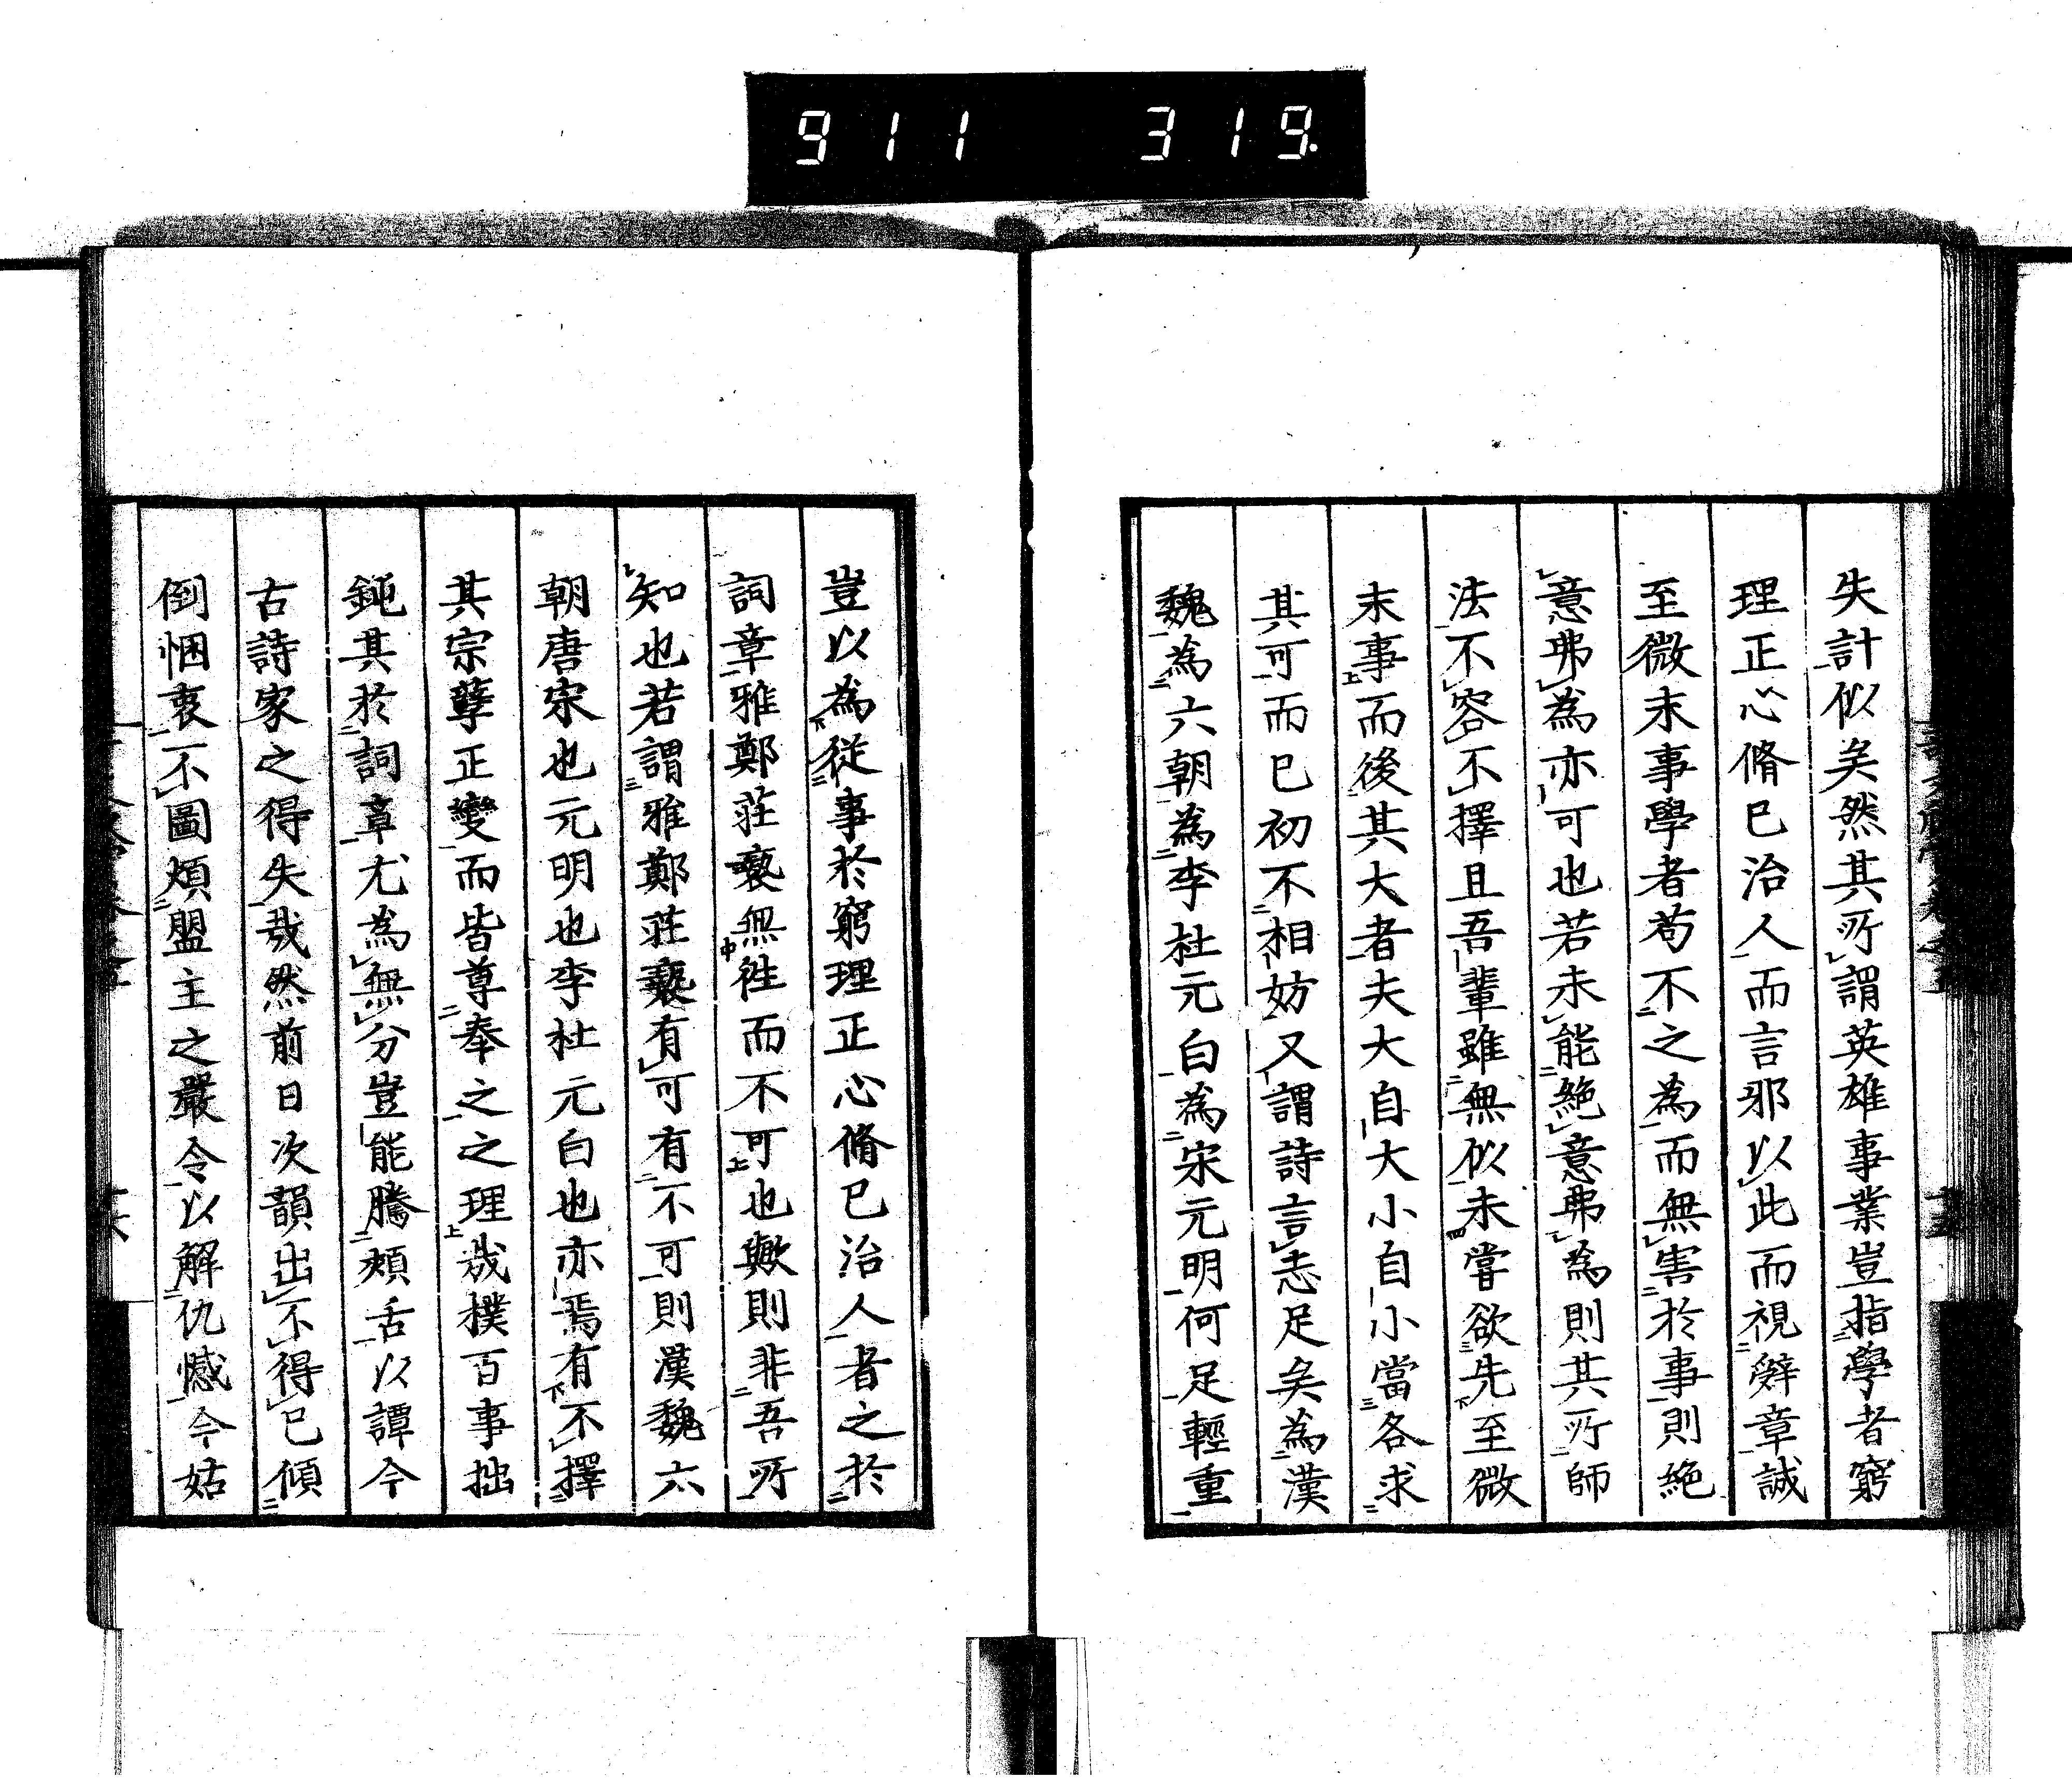 911 319.
失計似矣然其所謂英雄事業豈指學者窮
理正心脩己治人而言邪以此而視辭章誠
至微末事學者苟不之為而無害於事則絶
意弗為亦可也若未能絶意弗為則其所師
法不容不擇且吾輩雖無似未嘗欲先至微
末事而後其大者夫大自大小自小當各求
其可而已初不相妨又謂詩言志足矣為漢
魏為六朝為李杜元白為宋元明何足輕重
豈以為從事於窮理正心脩己治人者之於
詞章雅鄭莊褻無徃而不可也歟則非吾所
知也若謂雅鄭莊褻有可有不可則漢魏六
朝唐宋也元明也李杜元白也亦焉有不擇
其宗孽正變而皆尊奉之之理哉樸百事拙
鈍其於詞章尤為無分豈能騰頰舌以譚今
古詩家之得失哉然前日次韻出不得已傾
倒悃衷不圖煩盟主之嚴令以解仇憾今姑